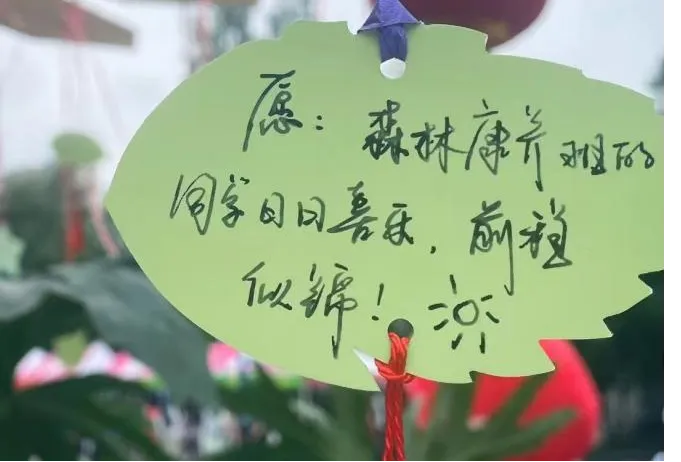 愿：森林康养班的
同学日日喜乐，前程
似锦！